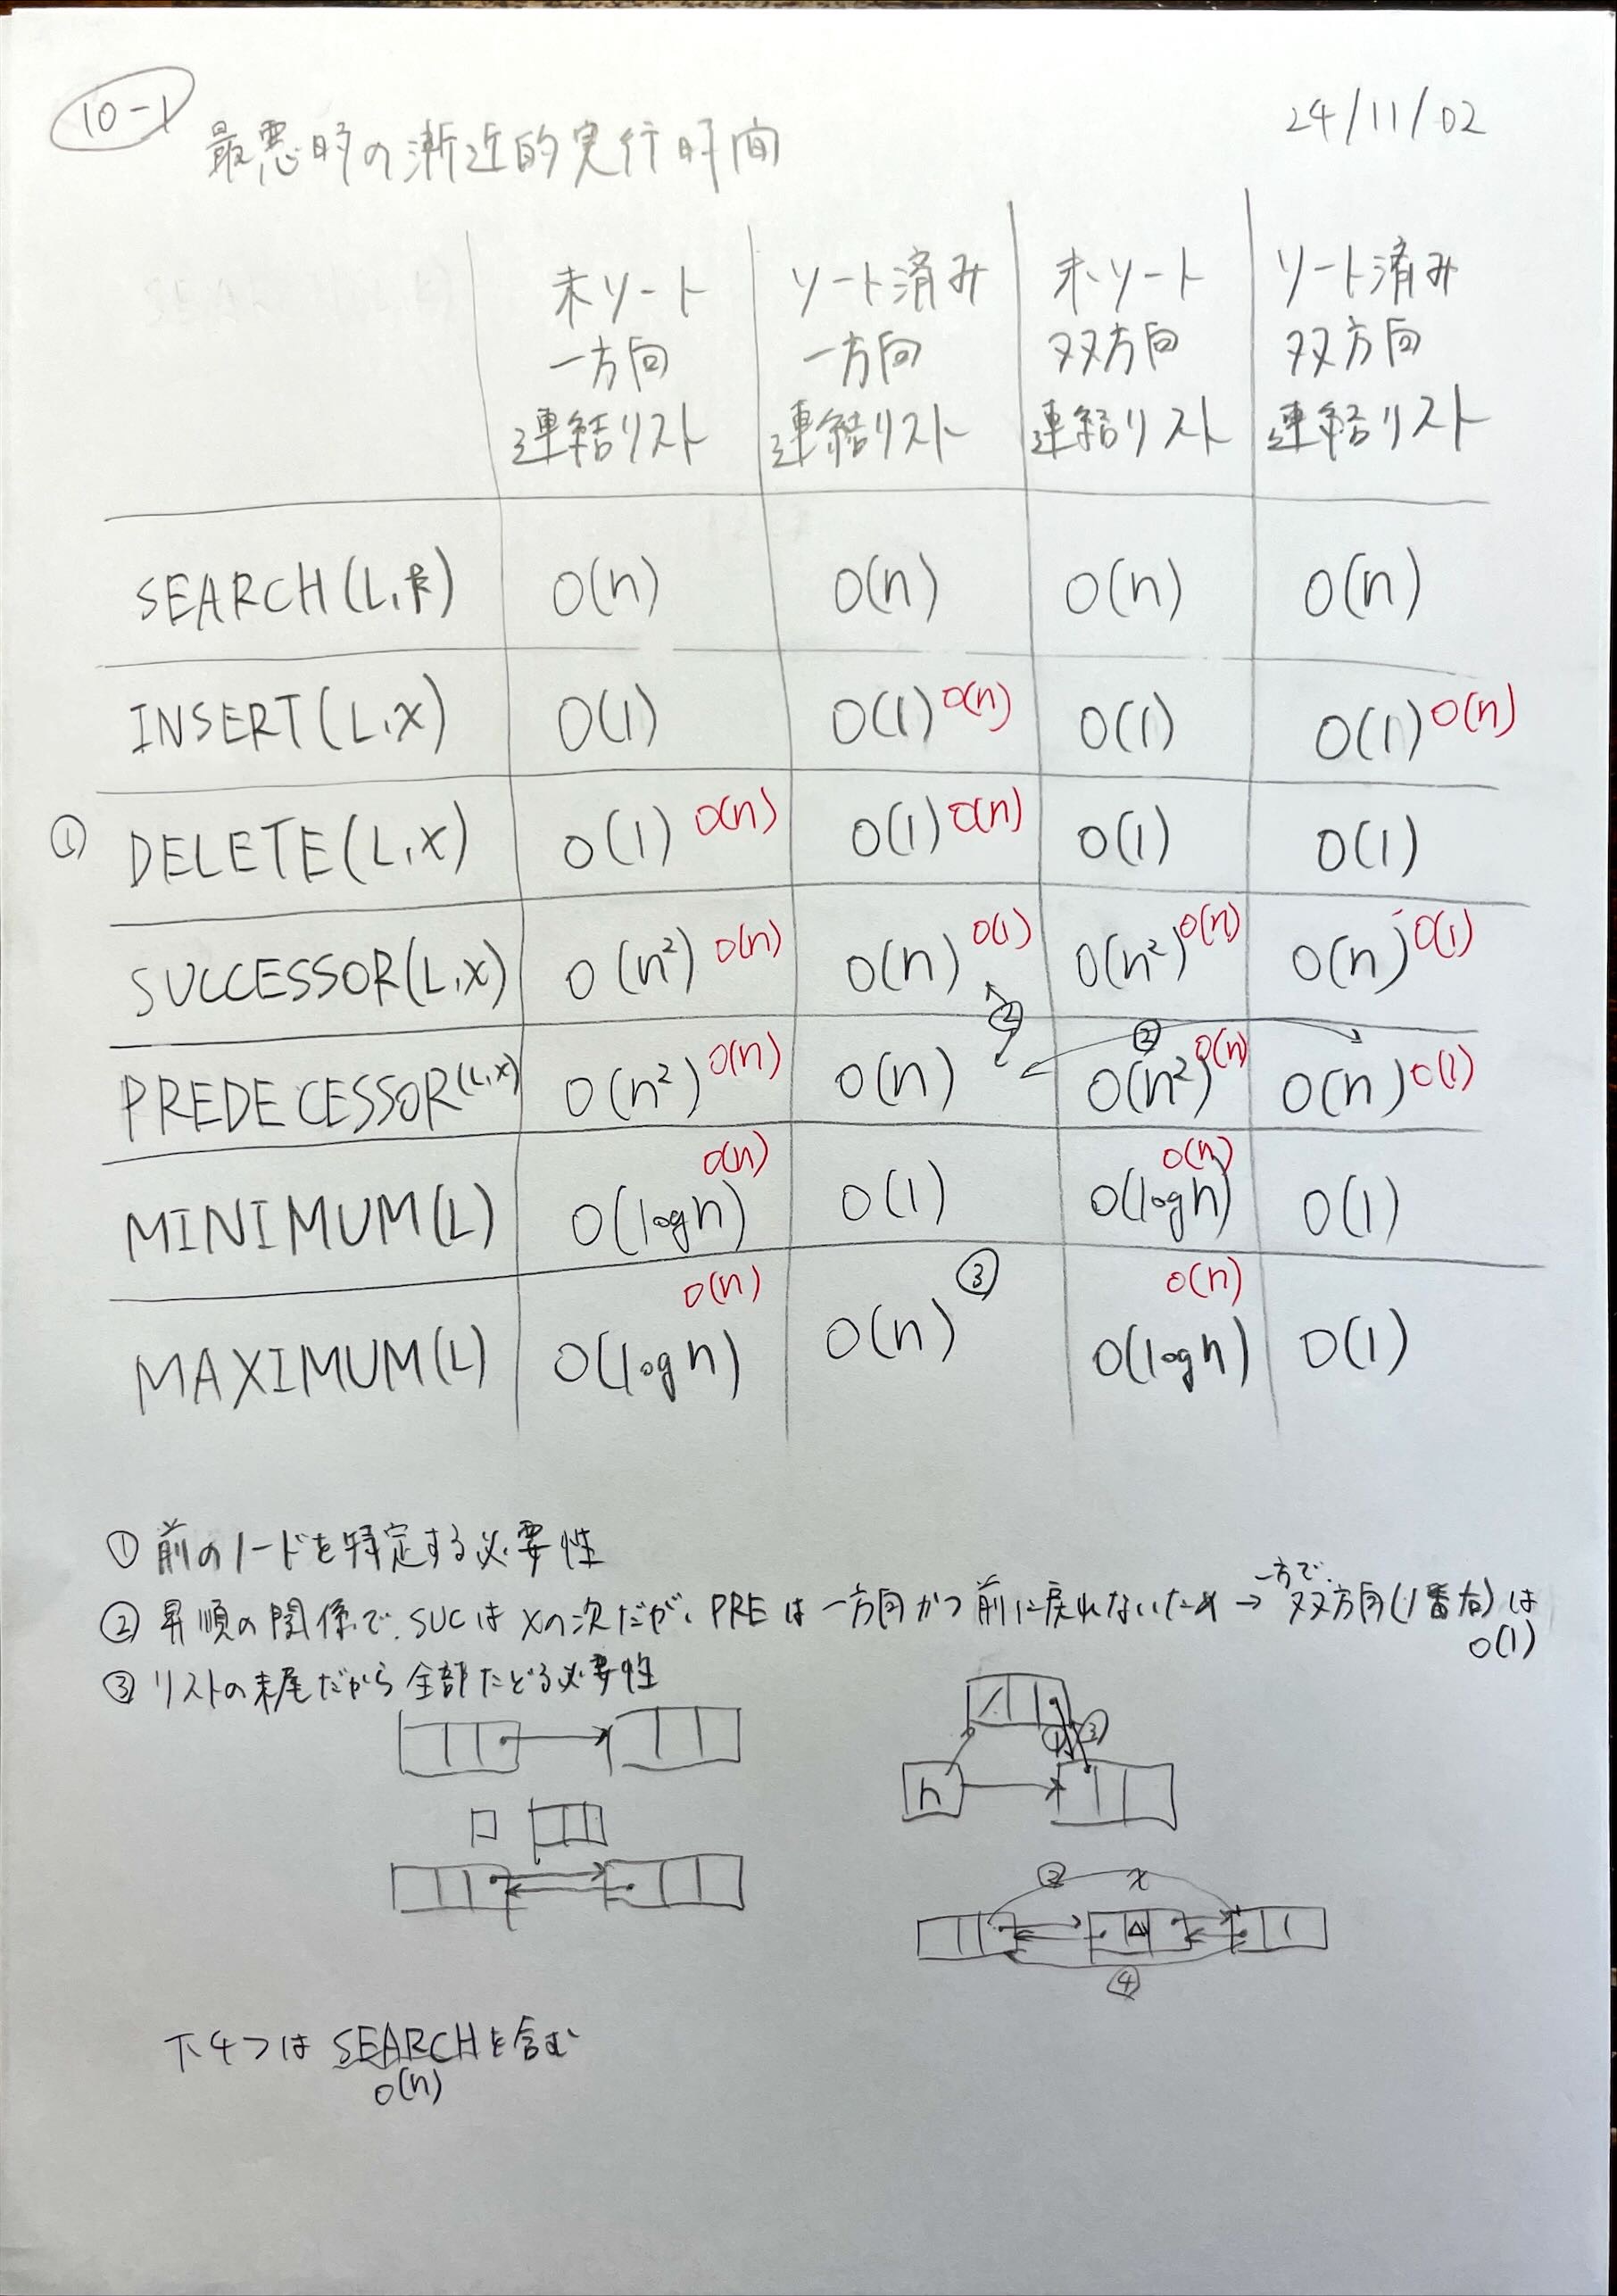 10-1
24/11/02
最悪時の漸近的実行時間
未ソート ソート済み 未ソート ソート済み
一方向 一方向 双方向 双方向
連結リスト 連結リスト 連結リスト 連結リスト
SEARCH(L,k) O(n) O(n) O(n) O(n)
INSERT(L,x) O(1) O(1) O(n) O(1) O(1) O(n)
① DELETE(L,x) O(1) O(n) O(1) O(n) O(1) O(1)
SUCCESSOR(L,x) O(n²) O(n) O(n) O(1) O(n²) O(n) O(n) O(1)
② ②
PREDECESSOR(L,x) O(n²) O(n) O(n) O(n²) O(n) O(n) O(1)
MINIMUM(L) O(logn) O(n) O(1) O(logn) O(n) O(1)
MAXIMUM(L) O(logn) O(n) O(n) ③ O(logn) O(n) O(1)
① 前のノードを特定する必要性
② 昇順の関係で、SUCはxの次だが、PREは一方向かつ前に戻れないため→一方で、双方向(1番右)は
O(1)
③ リストの末尾だから全部たどる必要性
① ③
n
② x
④
下4つはSEARCHを含む
O(n)